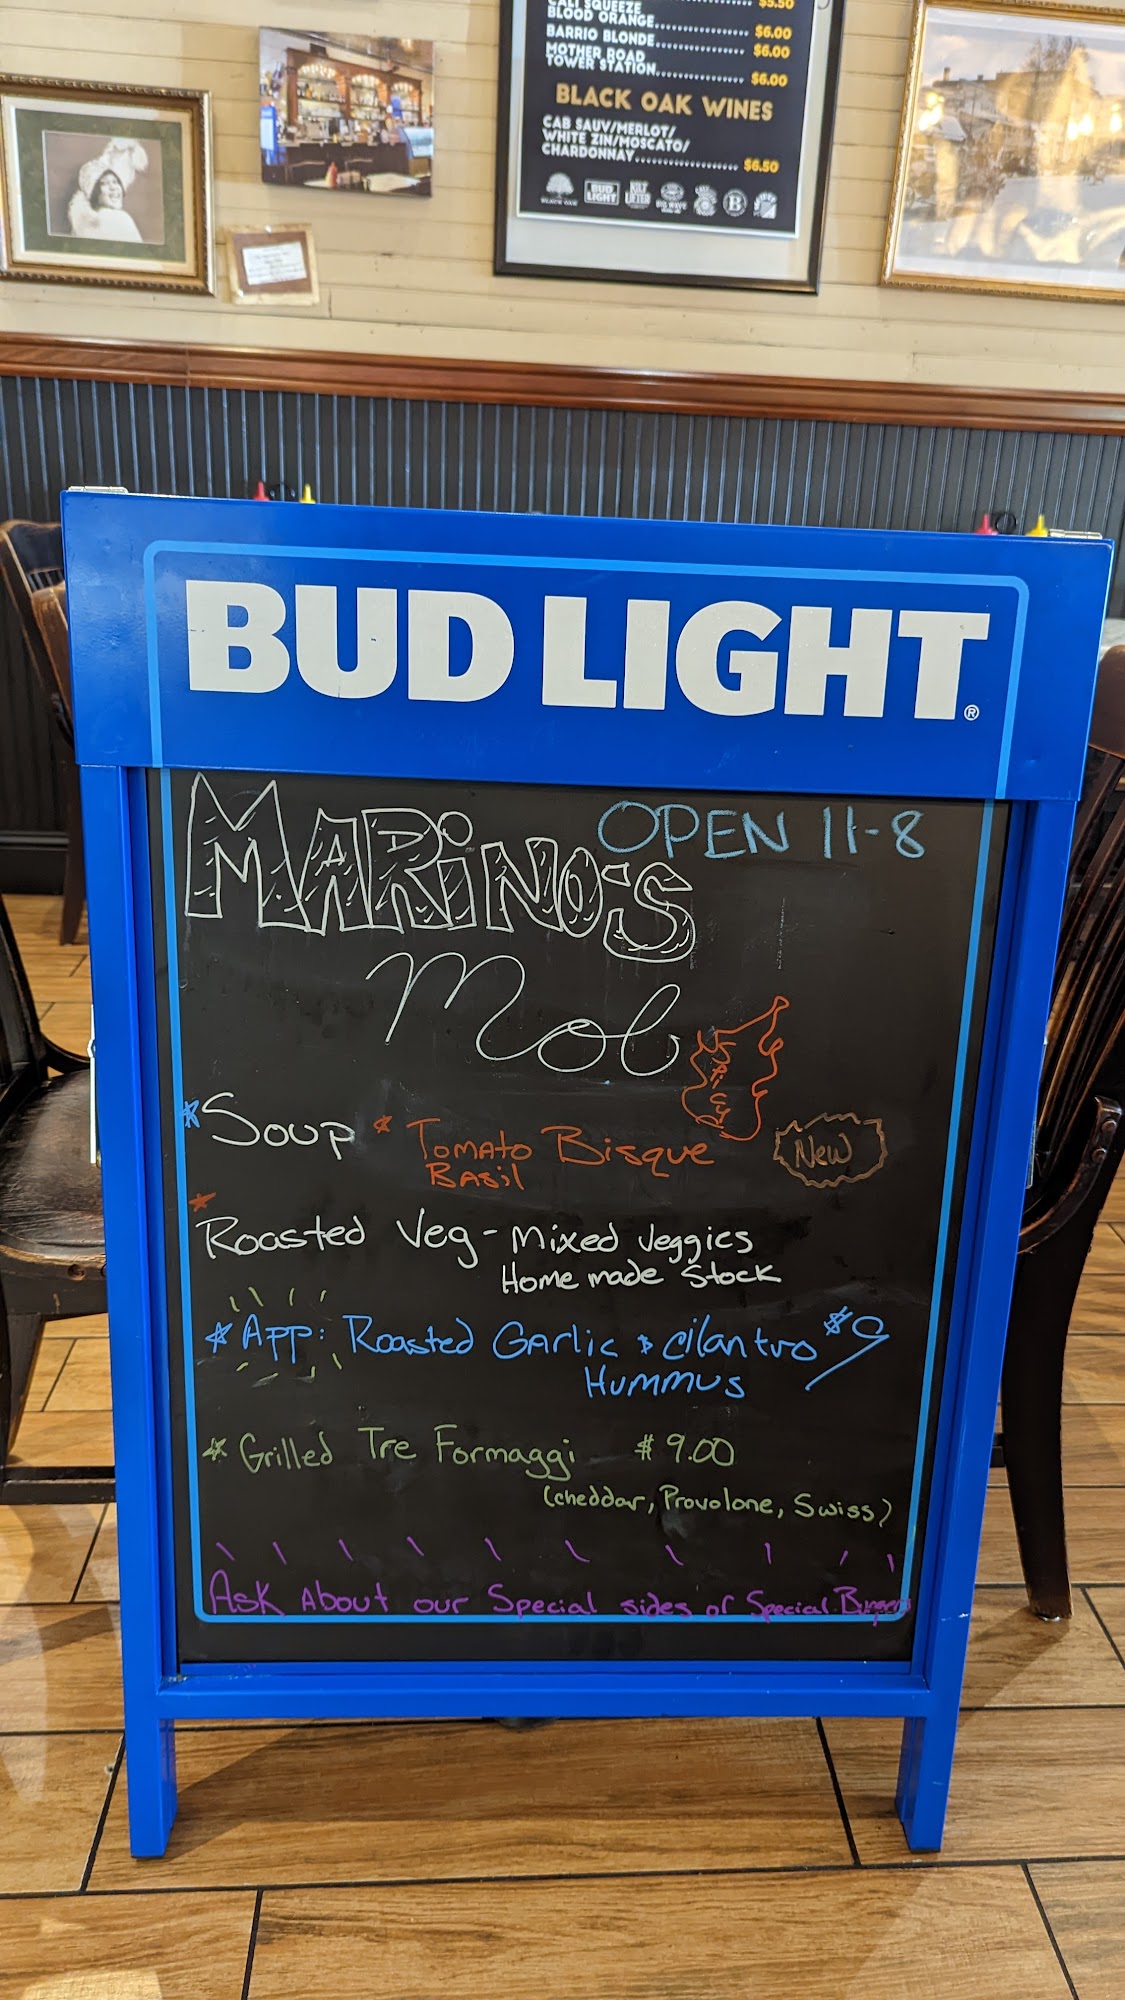 $5.50
CALI SQUEEZE
BLOOD ORANGE.................. $6.00
BARRIO BLONDE................ $6.00
MOTHER ROAD
TOWER STATION.............. $6.00
BLACK OAK WINES
CAB SAUV/MERLOT/
WHITE ZIN/MOSCATO/
CHARDONNAY................. $6.50
BLACK OAK
BUD LIGHT
KILT LIFTER
BIG WAVE
B
BUD LIGHT®
MARINO'S
OPEN 11-8
Mob
SPICY
Soup * Tomato Bisque
Basil
New
Roasted Veg - Mixed Veggies
Home made Stock
* App: Roasted Garlic & Cilantro $9
Hummus
* Grilled Tre Formaggi $9.00
(cheddar, Provolone, Swiss)
Ask About our Special sides or Special Burgers